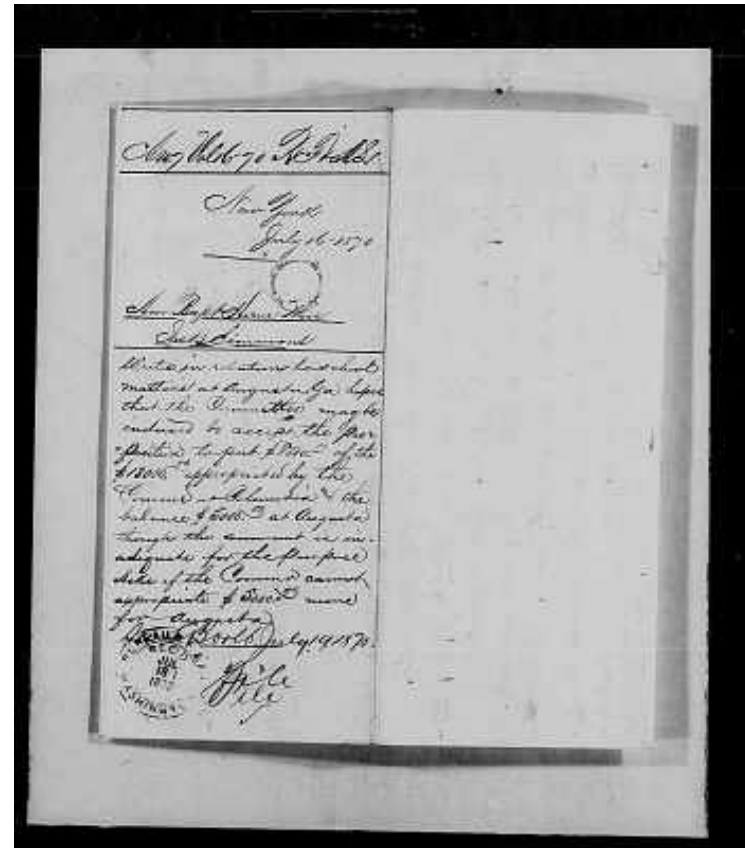 New York
July 16 1870
Am Bapt Home Miss
Writes in relation to school
matters at Augusta Ga hopes
that the Committee may be
induced to accept the Prop
osition to put $8000 of the
$13000 appropriated by the
Commr at Columbia & the
balance $5000 at Augusta
though the amount is in-
adequate for the Purpose
Asks if the Commr cannot
appropriate $5000 more
for Augusta
July 19 1870
File